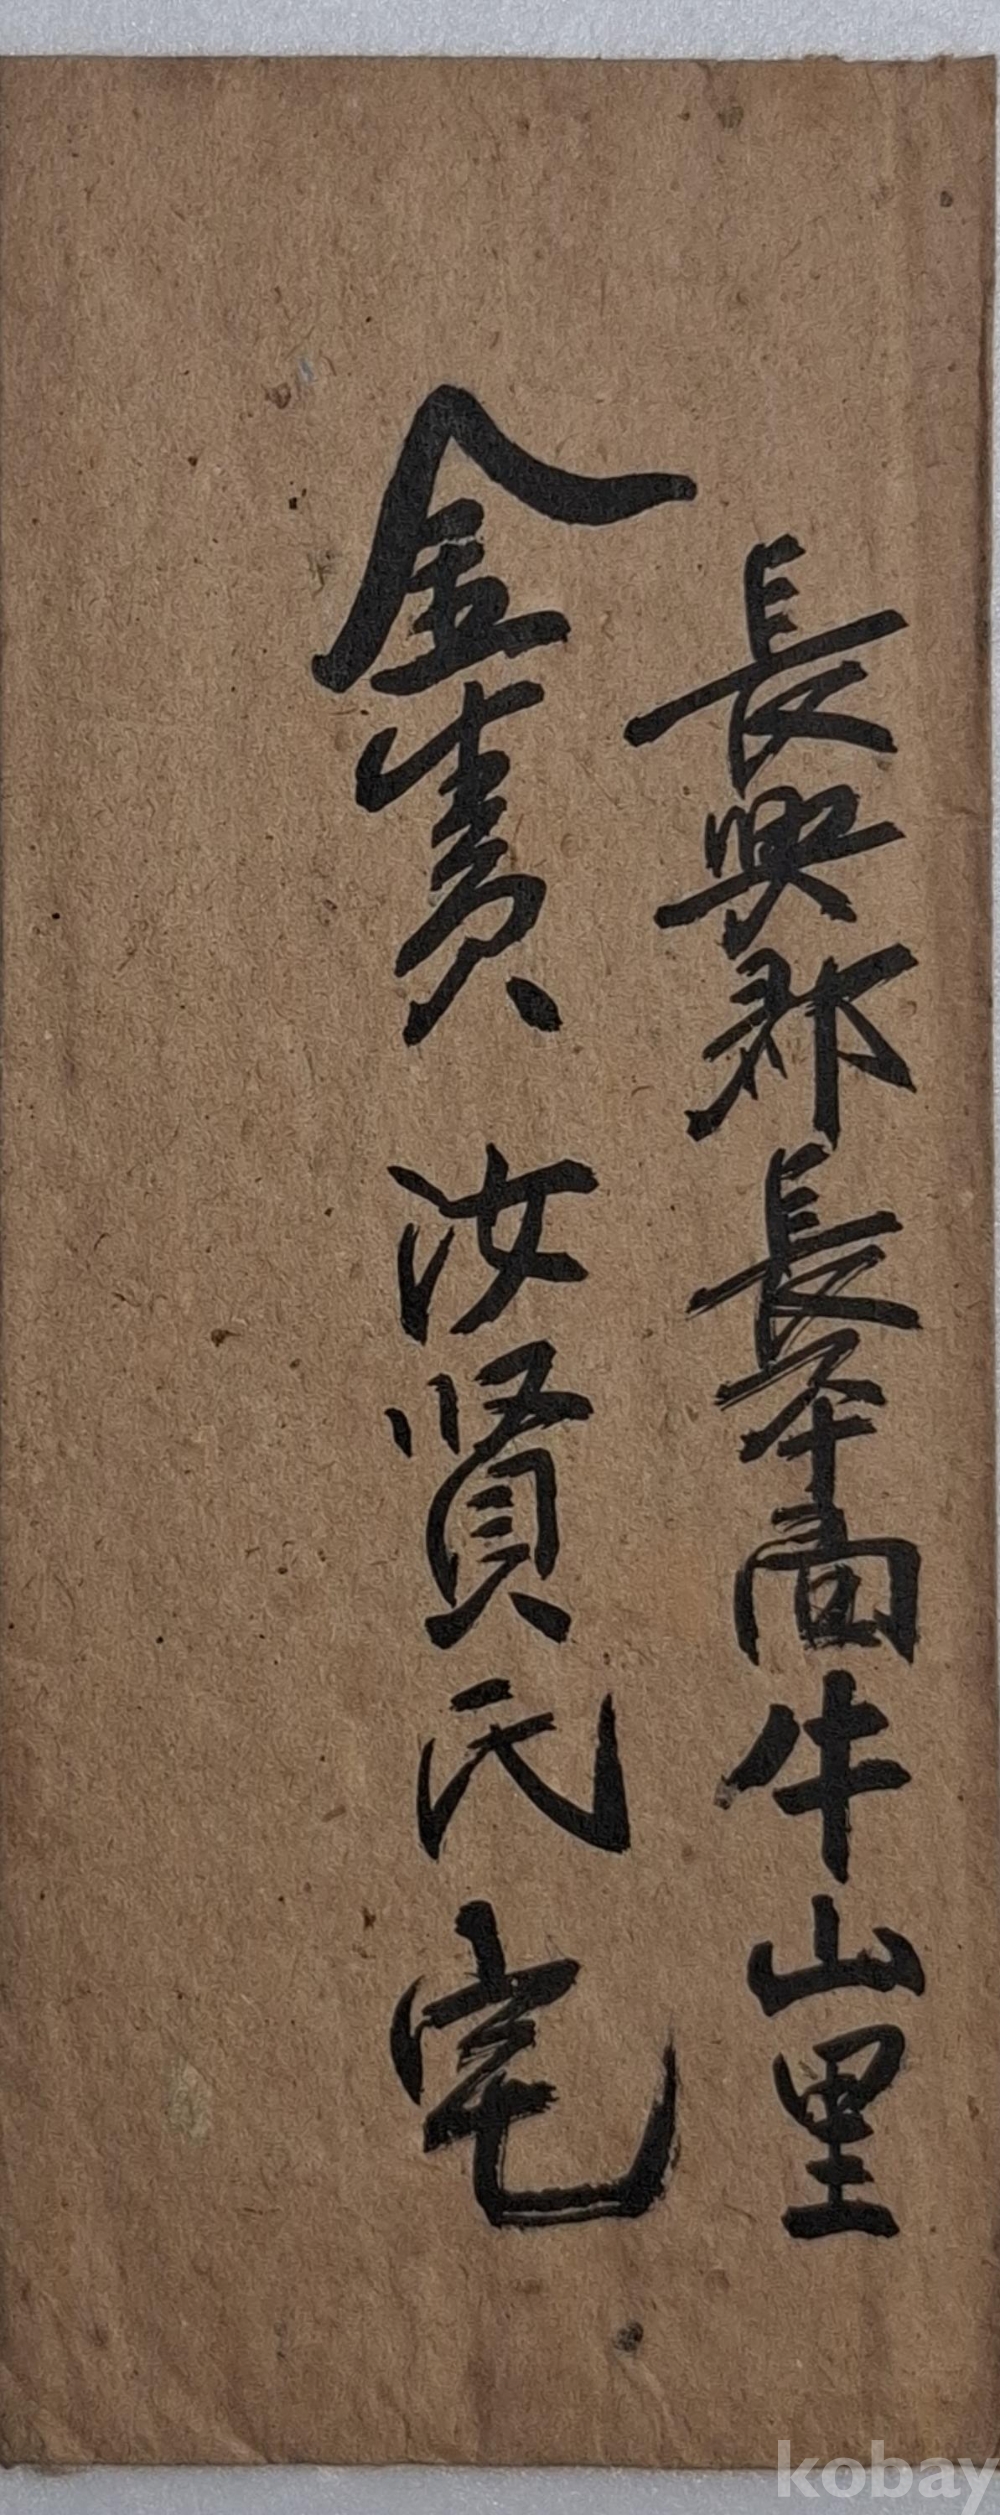 長興郡長平面牛山里
金生員 汝賢氏 宅
kobay